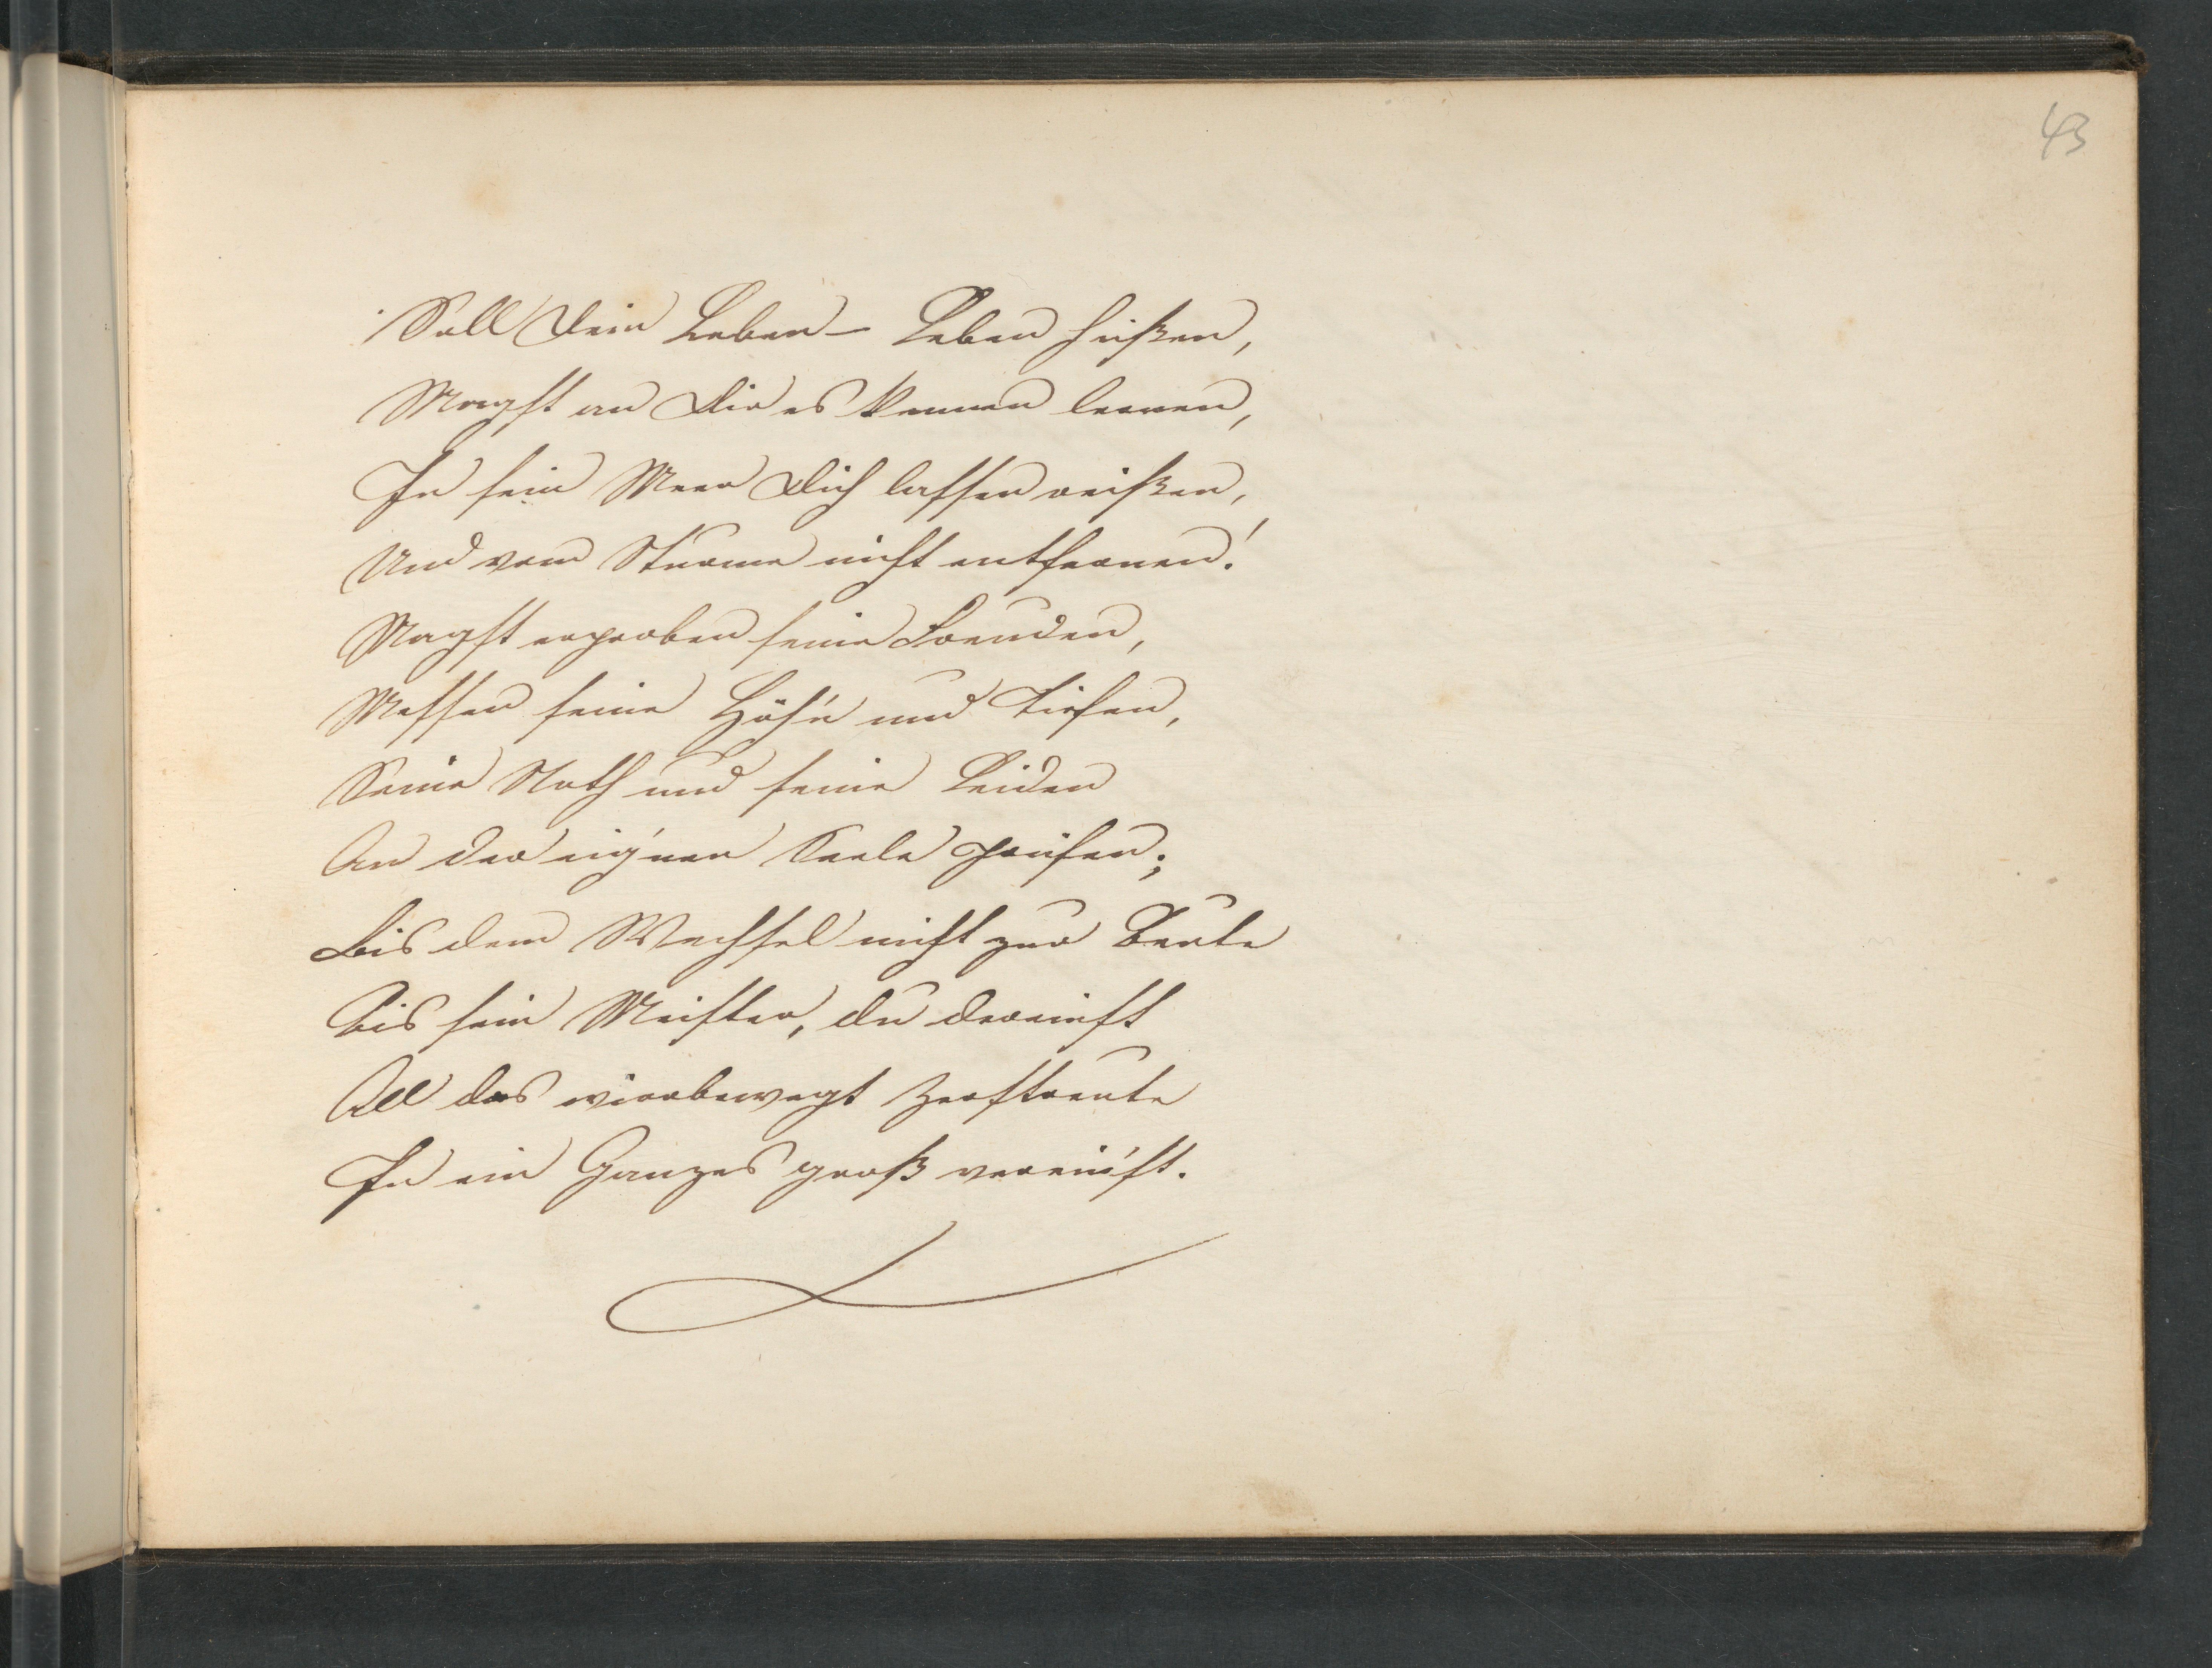 43
Soll Dein Leben – Leben heißen,
Magst an Dir es kennen lernen,
In sein Meer Dich lassen reißen,
Und vom Sturme nicht entfernen!
Magst erproben seine Freuden,
Messen seine Höh'n und Tiefen,
Seine Noth und seine Leiden
An der eig'nen Seele prüfen;
Bis dem Wechsel nicht zur Beute
Bis sein Meister, du dereinst
All das wirrbewegt Zerstreute
In ein Ganzes groß verein'st.